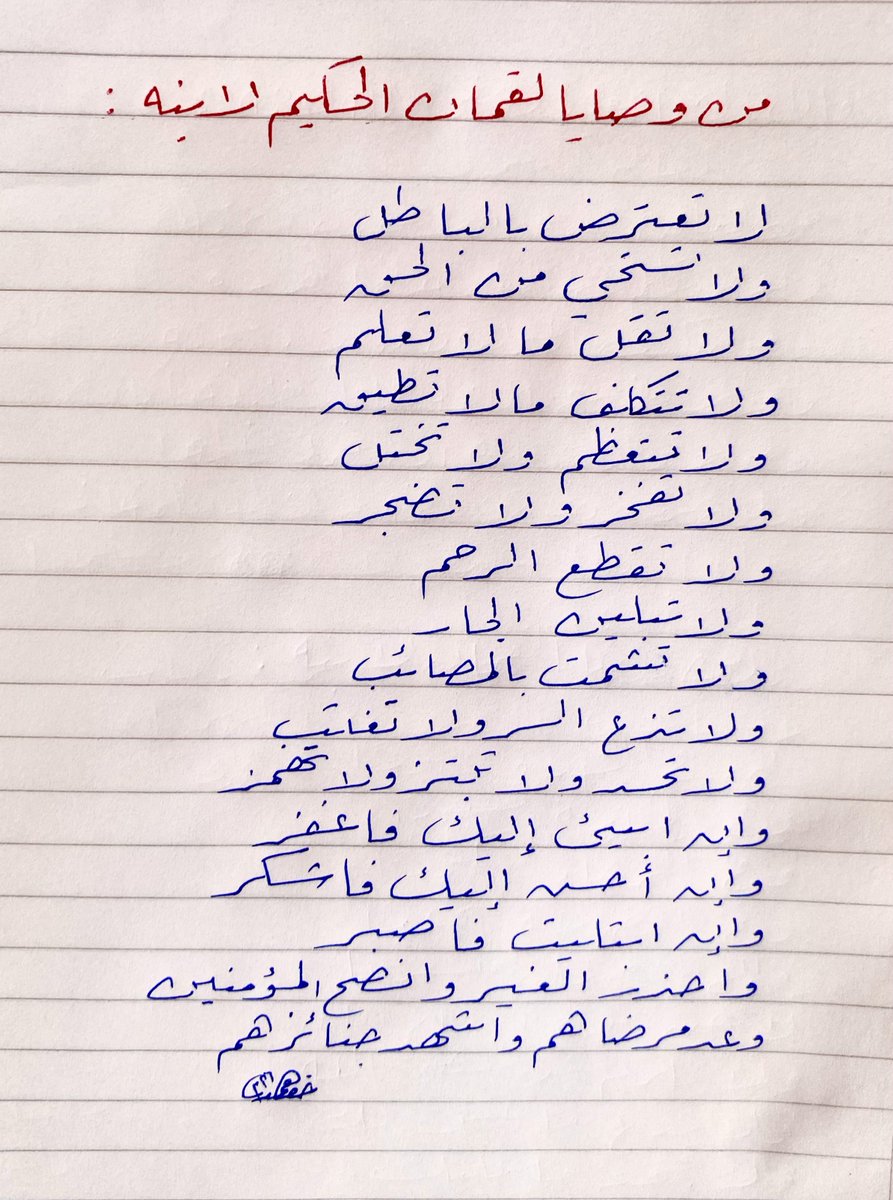 من وصايا لقمان الحكيم لابنه :
لا تعترض بالباطل
ولا تستحي من الحق
ولا تقل ما لا تعلم
ولا تتكلف ما لا تطيق
ولا تتعظم ولا تختل
ولا تفخر ولا تضجر
ولا تقطع الرحم
ولا الجار
ولا تشمت بالمصائب
ولا تذع السر ولا تغتب
ولا تحسد ولا ولا تهمز
وإن اسيئ إليك فاغفر
وإن أحسن إليك فاشكر
وإن ابتليت فاصبر
واحذر الغير وانصح المؤمنين
وعد مرضاهم واشهد جنائزهم